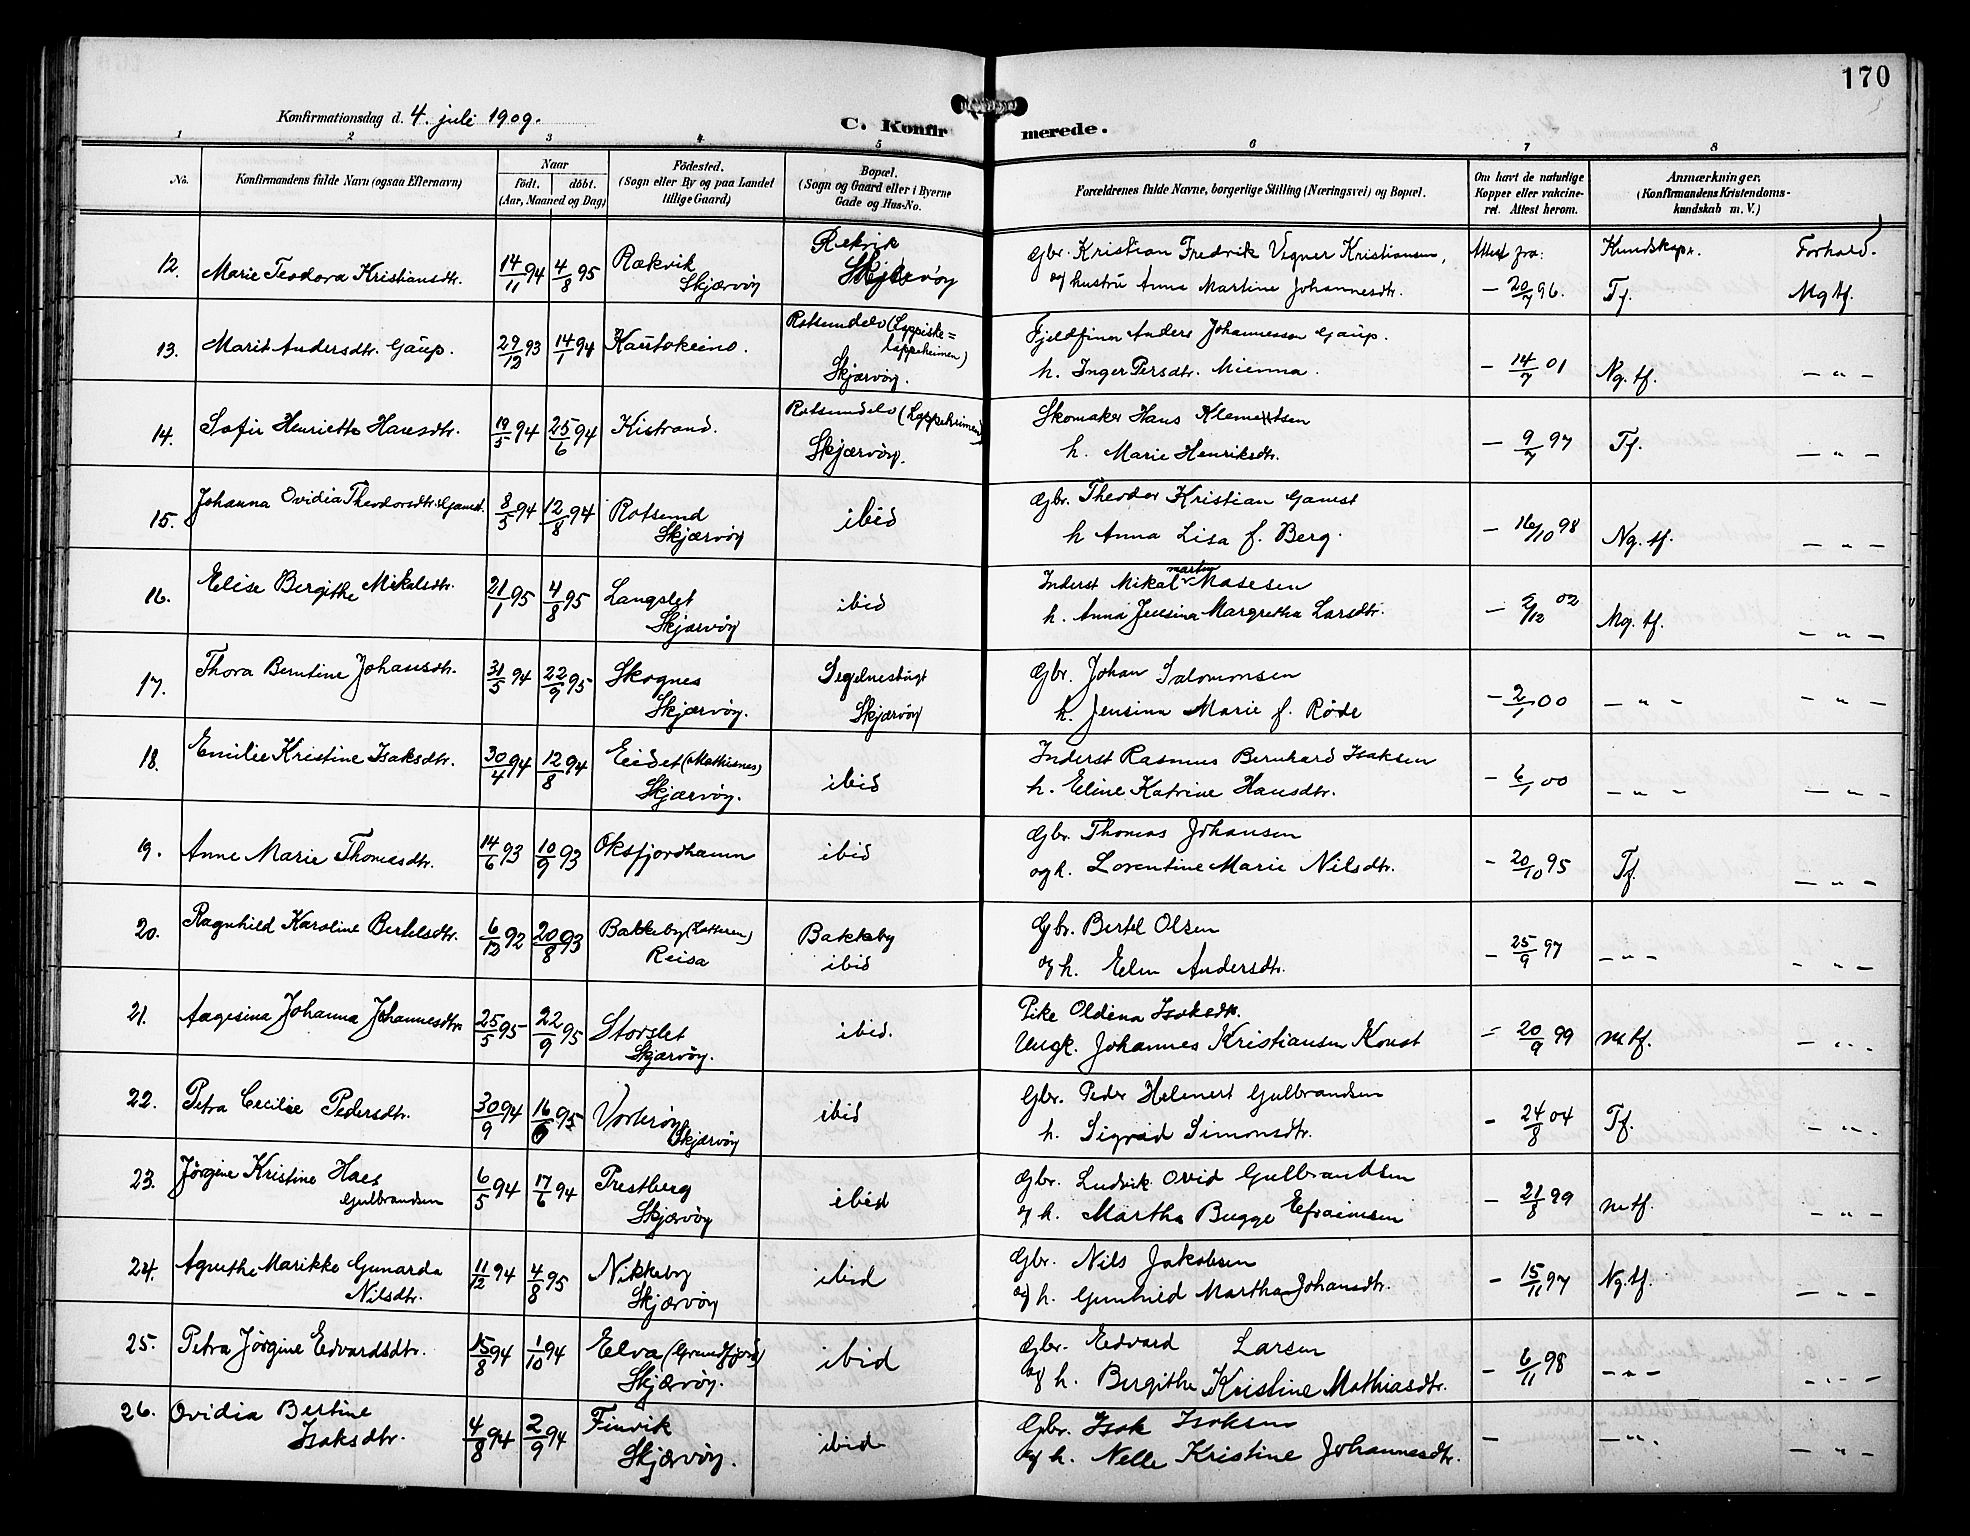 170
Konfirmationsdag d. 4. juli 1909.
C. Konfirmerede.
1 2 3 4 5 6 7 8
No.
Konfirmandens fulde Navn (ogsaa Efternavn)
Naar
födt. döbt.
(Aar, Maaned og Dag)
Födested.
(Sogn eller By og paa Landet
tillige Gaard)
Bopæl.
(Sogn og Gaard eller i Byerne
Gade og Hus-No.
Forældrenes fulde Navne, borgerlige Stilling (Næringsvei) og Bopæl.
Om havt de naturlige
Kopper eller vakcine-
ret. Attest herom.
Anmærkninger.
(Konfirmandens Kristendoms-
kundskab m. V.)
12. Marie Teodora Kristiansdtr. 14/11 94 4/8 95 Rækvik Skjærvöy
Rekvik Skjervöy
Gbr. Kristian Fredrik Vegner Kristiansen,
og hustru Anna Martine Johannesdtr.
Attest fra: – 20/7 96. Kundskapr. Tf. Forhold. Mg tf.
13. Marit Andersdtr. Gaup. 29/12 93 14/1 94 Kautokeino.
Rotsundelv (Lyppiske=
lappeheimen)
Skjærvöy.
Fjeldfinn Anders Johannesson Gaup.
h. Inger Persdtr. Mienna.
– 14/7 01 Ng. tf. – " –
14. Sofie Henriette Hansdtr. 19/5 94 25/6 94 Kistrand.
Rotsundelv (Lappeheimen)
Skjærvöy.
Skomaker Hans Klemetsen
h. Marie Henriksdtr.
– 9/7 97 Tf. – " –
15. Johanna Ovidia Theodorsdtr. Gamst. 8/5 94 12/8 94 Rotsund
Skjærvöy
ibid
Gbr. Theodor Kristian Gamst
h Anna Lisa f. Berg.
– 16/10 98 Ng. tf. – " –
16. Elise Bergithe Mikalsdtr. 21/1 95 4/8 95 Langslet
Skjærvöy
ibid
Inderst Mikal Martin Mosesen
h. Anna Jensina Margretha Larsdtr.
– 2/12 02 Mg. tf. – " –
17. Thora Berntine Johansdtr. 31/5 94 22/9 95 Skognes
Skjærvöy.
Segelnesbugt
Skjærvöy
Gbr. Johan Salomonsen
h. Jensina Marie f. Röde
– 2/1 00 – " – – " –
18. Emilie Kristine Isaksdtr. 30/4 94 12/8 94 Eidet (Mathisnes)
Skjærvöy.
ibid
Inderst Rasmus Bernhard Isaksen
h. Eline Katrine Hansdtr.
– 6/1 00 – " – – " –
19. Anne Marie Thomasdtr. 14/6 93 10/9 93 Oksfjordhamn
ibid
Gbr. Thomas Johansen
og h. Lorentine Marie Nilsdtr.
– 20/10 95 Tf. – " –
20. Ragnhild Karoline Bertelsdtr. 6/12 92 20/8 93 Bakkeby
Reisa
Bakkeby
ibid
Gbr. Bertel Olsen
og h. Elen Andersdtr.
– 25/9 97 – " – – " –
21. Aagesina Johanna Johannesdtr. 25/5 95 22/9 95 Storslet
Skjærvöy.
ibid.
Pike Oldena Isaksdtr.
Ungk. Johannes Kristiansen Konst
– 20/9 99 mtf. – " –
22. Petra Cecilie Pedersdtr. 30/9 94 16/6 95 Vorteröy
Skjærvöy
ibid
Gbr. Peder Helmert Gulbrandsen
h. Sigrid Simonsdtr.
– 24/8 04 Tf. – " –
23. Jörgine Kristine Haes
Gulbrandsen
6/5 94 17/6 94 Prestberg
Skjærvöy
ibid
Gbr. Ludvik Ovid Gulbrandsen
og h. Martha Bugge Efraimsen
– 21/8 99 mtf. – " –
24. Agnethe Marikke Gunarda
Nilsdtr.
11/12 94 4/8 95 Nikkeby
Skjærvöy
ibid
Gbr. Nils Jakobsen
og h. Gunhild Martha Johansdtr.
– 15/11 97 Ng. tf. – " –
25. Petra Jörgine Edvardsdtr. 15/8 94 1/10 94 Elva (Grundfjord)
Skjærvöy.
ibid
Gbr. Edvard Larsen
og h. Bergithe Kristine Mathiasdtr.
– 6/11 98 – " – – " –
26. Ovidia Bertine
Isaksdtr.
4/8 94 2/9 94 Finvik
Skjærvöy.
ibid
Gbr. Isak Isaksen
og h. Nelle Kristine Johannesdtr.
– – " – – " –